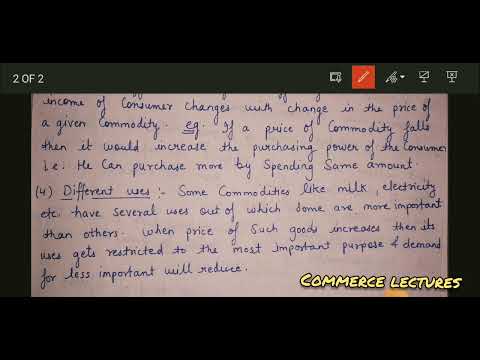 2 OF 2
income of Consumer changes with change in the price of
a given Commodity. eg. If a price of Commodity falls
then it would increase the purchasing power of the Consumer
i.e. He Can purchase more by Spending Same amount.
(4) Different uses :- Some Commodities like milk, electricity
etc. have several uses out of which some are more important
than others. When price of Such goods increases then its
uses gets restricted to the most important purpose & demand
for less important will reduce.
COMMERCE LECTURES